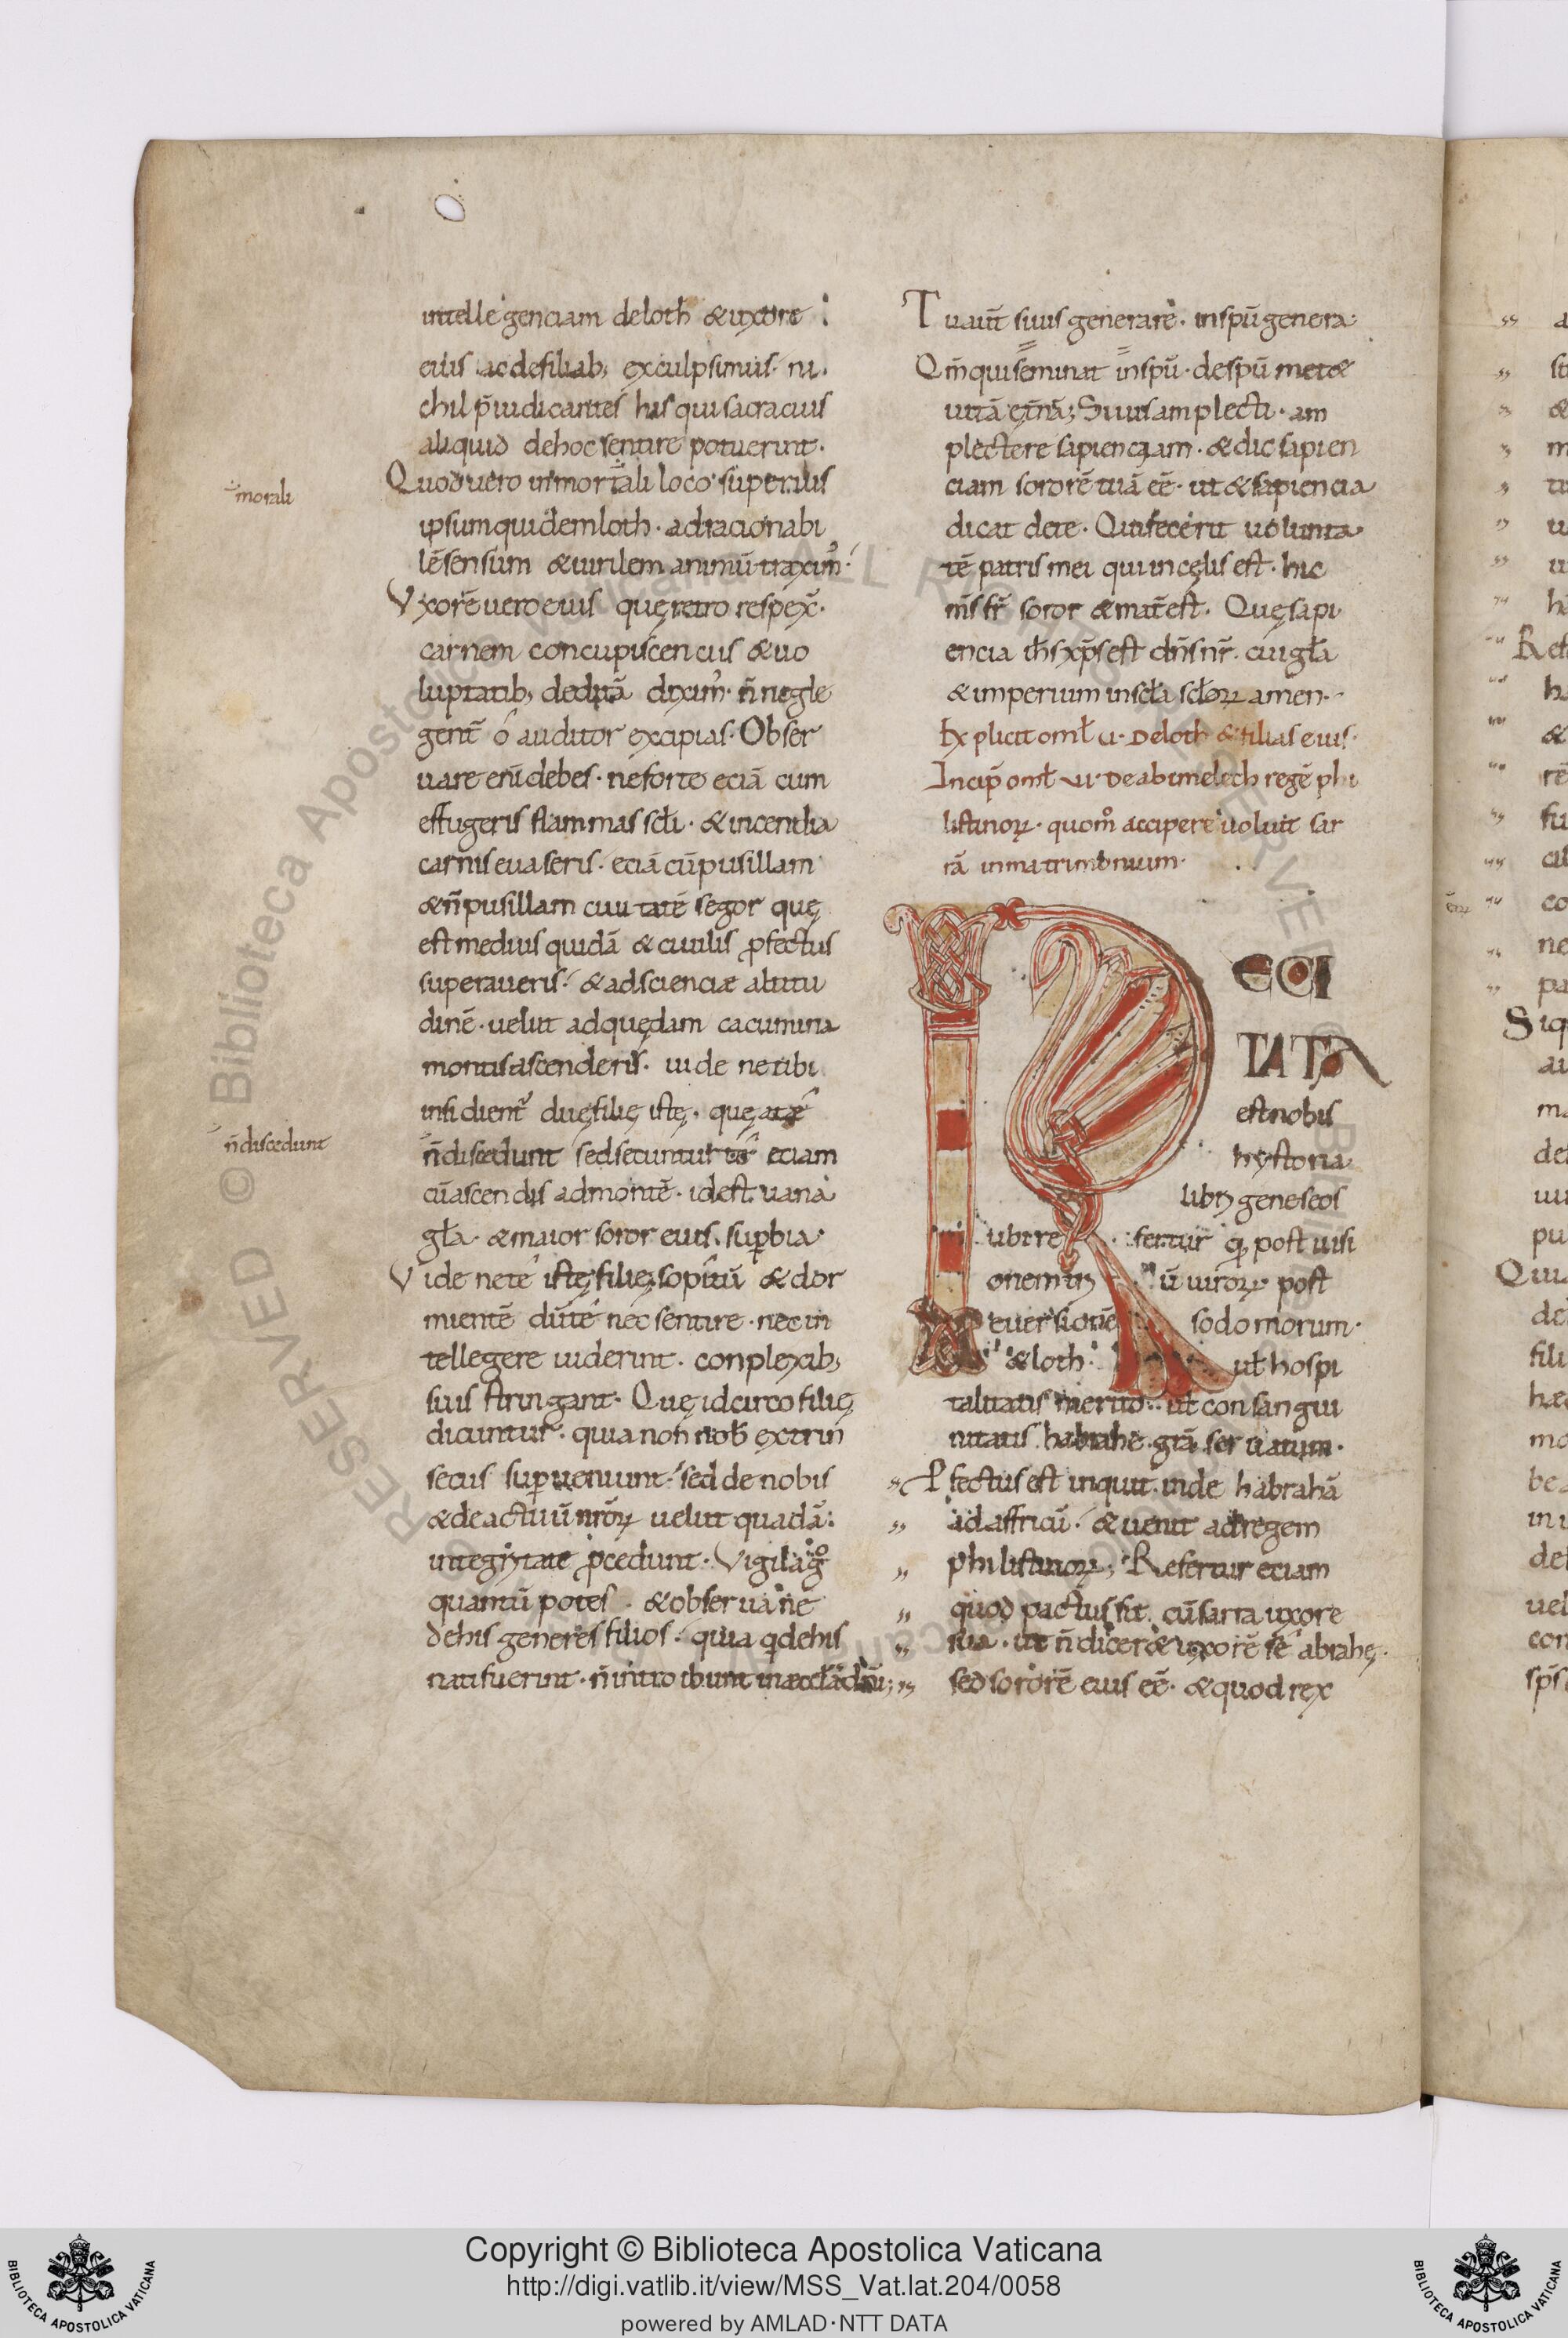 intellegenciam deloth & uxore
eius ac defiliab; exculpsimus. ni
chil p̄iudicantes his qui sacracius
aliquid dehoc sentire potuerint.
Quod uero in mortali loco superius
ipsum quidem loth. adracionabi
lē sensum & uirilem animū traxim᾿.
Vxorē uero eius quę retro respex̄.
carnem concupiscenciis & uo
luptatib; deditā dixim᾿. n̄ negle
gent̄ o auditor excipias. Obser
uare eni debes. ne forte eciā cum
effugeris flammas scl̄i. & incendia
carnis euaseris. eciā cū pusillam
& n̄ pusillam ciuitatē segor quę
est medius quidā & ciuilis ꝓfectus
superaueris. & adscienciæ altitu
dinē. uelut adquędam cacumina
montis ascenderis. uide ne tibi
insidient᾿ duę filię istę. quę a te
n̄ discedunt sed secuntur te eciam
cū ascendis admontē. idest uana
gl̄a. & maior soror eius. suꝑbia.
Vide ne te istę filię sopitū & dor
mientē dū te nec sentire. nec in
tellegere uiderint. conplexib;
suis stringant. Quę idcirco filię
dicuntur. quia non nob̄ extrin
secus suꝑueniunt. sed de nobis
& de actuū nr̄oꝝ uelut quadā
integritate ꝓcedunt. Vigila g̊
quantū potes. & obserua ne
dehis generes filios. quia q dehis
nati fuerint. n̄ introibunt in æccl̄ā dn̄i;
ū morali
n̄ discedunt
Tu aut̄ si uis generare. in spū genera.
Qm̄ qui seminat in spū. de spū met&
uitā et̄nā; Si uis amplecti. am
plectere sapienciam. & dic sapien
ciam sororē tuā eē. ut & sapiencia
dicat de te. Qui fecerit uolunta
tē patris mei qui in cęlis est. hic
m̄s fr̄ soror & mat̄ est. Quę sapi
encia ih̄s xp̄s est dn̄s nr̄. cui gl̄a
& imperium in scl̄a scl̄oꝝ amen.
Explicit oml̄ u. De loth & filias eius.
Incip̄ oml̄ ui. De abimelech regē phi
listinoꝝ. quom̊ accipere uoluit sar
rā in matrimonium.
RECI
TATA
est nobis
hystoria
libri geneseos
ubi re fertur q post uisi
onem triū uiroꝝ. post
euersionē sodomorum.
& loth. ut hospi
talitatis merito. ut consangui
nitatis habrahe grā seruatum.
Ꝓfectus est inquit inde habrahā
ad affricū. & uenit ad regem
philistinoꝝ; Refertur eciam
quod pactus sit. cū sarra uxore
sua. ut n̄ dicer& uxorē se abrahę.
sed sororē eius eē. & quod rex
RESERVED © Biblioteca Apostolica Vaticana
Copyright © Biblioteca Apostolica Vaticana
http://digi.vatlib.it/view/MSS_Vat.lat.204/0058
powered by AMLAD·NTT DATA
BIBLIOTECA APOSTOLICA VATICANA
BIBLIOTECA APOSTOLICA VATICANA